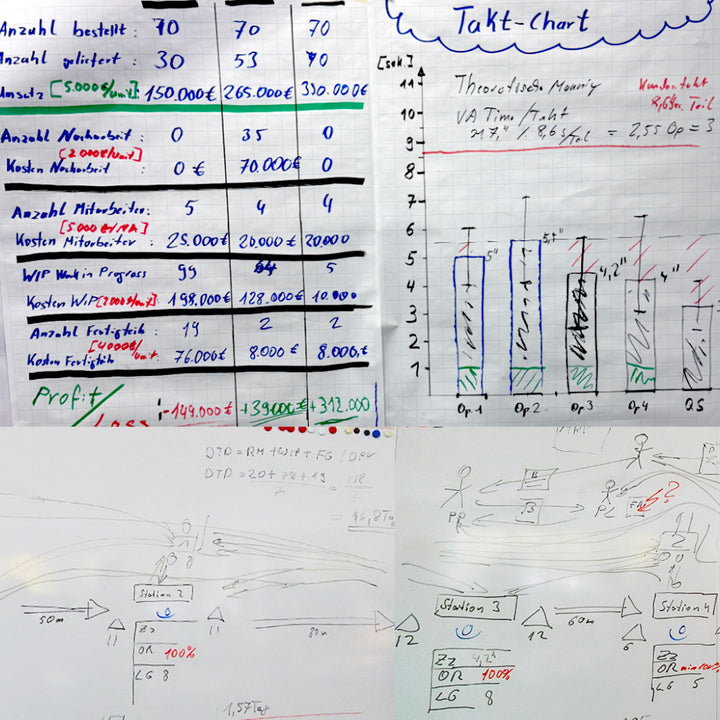 Anzahl bestellt: 70 70 70
Anzahl geliefert: 30 53 70
Umsatz [5.000€/unit] 150.000€ 265.000€ 350.000€
Anzahl Nacharbeit: 0 35 0
[2000€/unit]
Kosten Nacharbeit: 0 € 70.000€ 0
Anzahl Mitarbeiter: 5 4 4
[5000€/MA]
Kosten Mitarbeiter: 25.000€ 20.000€ 20000
WIP Work in Progress 99 64 5
Kosten WiP [2000€/unit] 198.000€ 128.000€ 10.000
Anzahl Fertigteile: 19 2 2
[4000€/unit]
Kosten Fertigteile 76.000€ 8.000€ 8.000,€
Profit/
Loss -149.000€ +39000€ +312.000
Takt-Chart
[sek.]
Theoretische
Kundentakt
8,6 sec Teil
VA Time/Takt
217," / 8,6 s/Teil = 2,55 Op = 3
11
10
9
8
7
6
5
4
3
2
1
5"
5,5"
4,2"
4"
Op.1 Op.2 Op3 Op4 QS
DTD = RM + WIP + FG /
DTD = 20+ + 19
= 46,8 Tag
Station 2
50m
11
11
80m
ZZ
OR 100%
LG 8
1,57 Tag
PL
?
2
Station 3
Station 4
12
12
60m
6
ZZ 4,2"
OR 100%
LG 8
ZZ
OR
LG 5